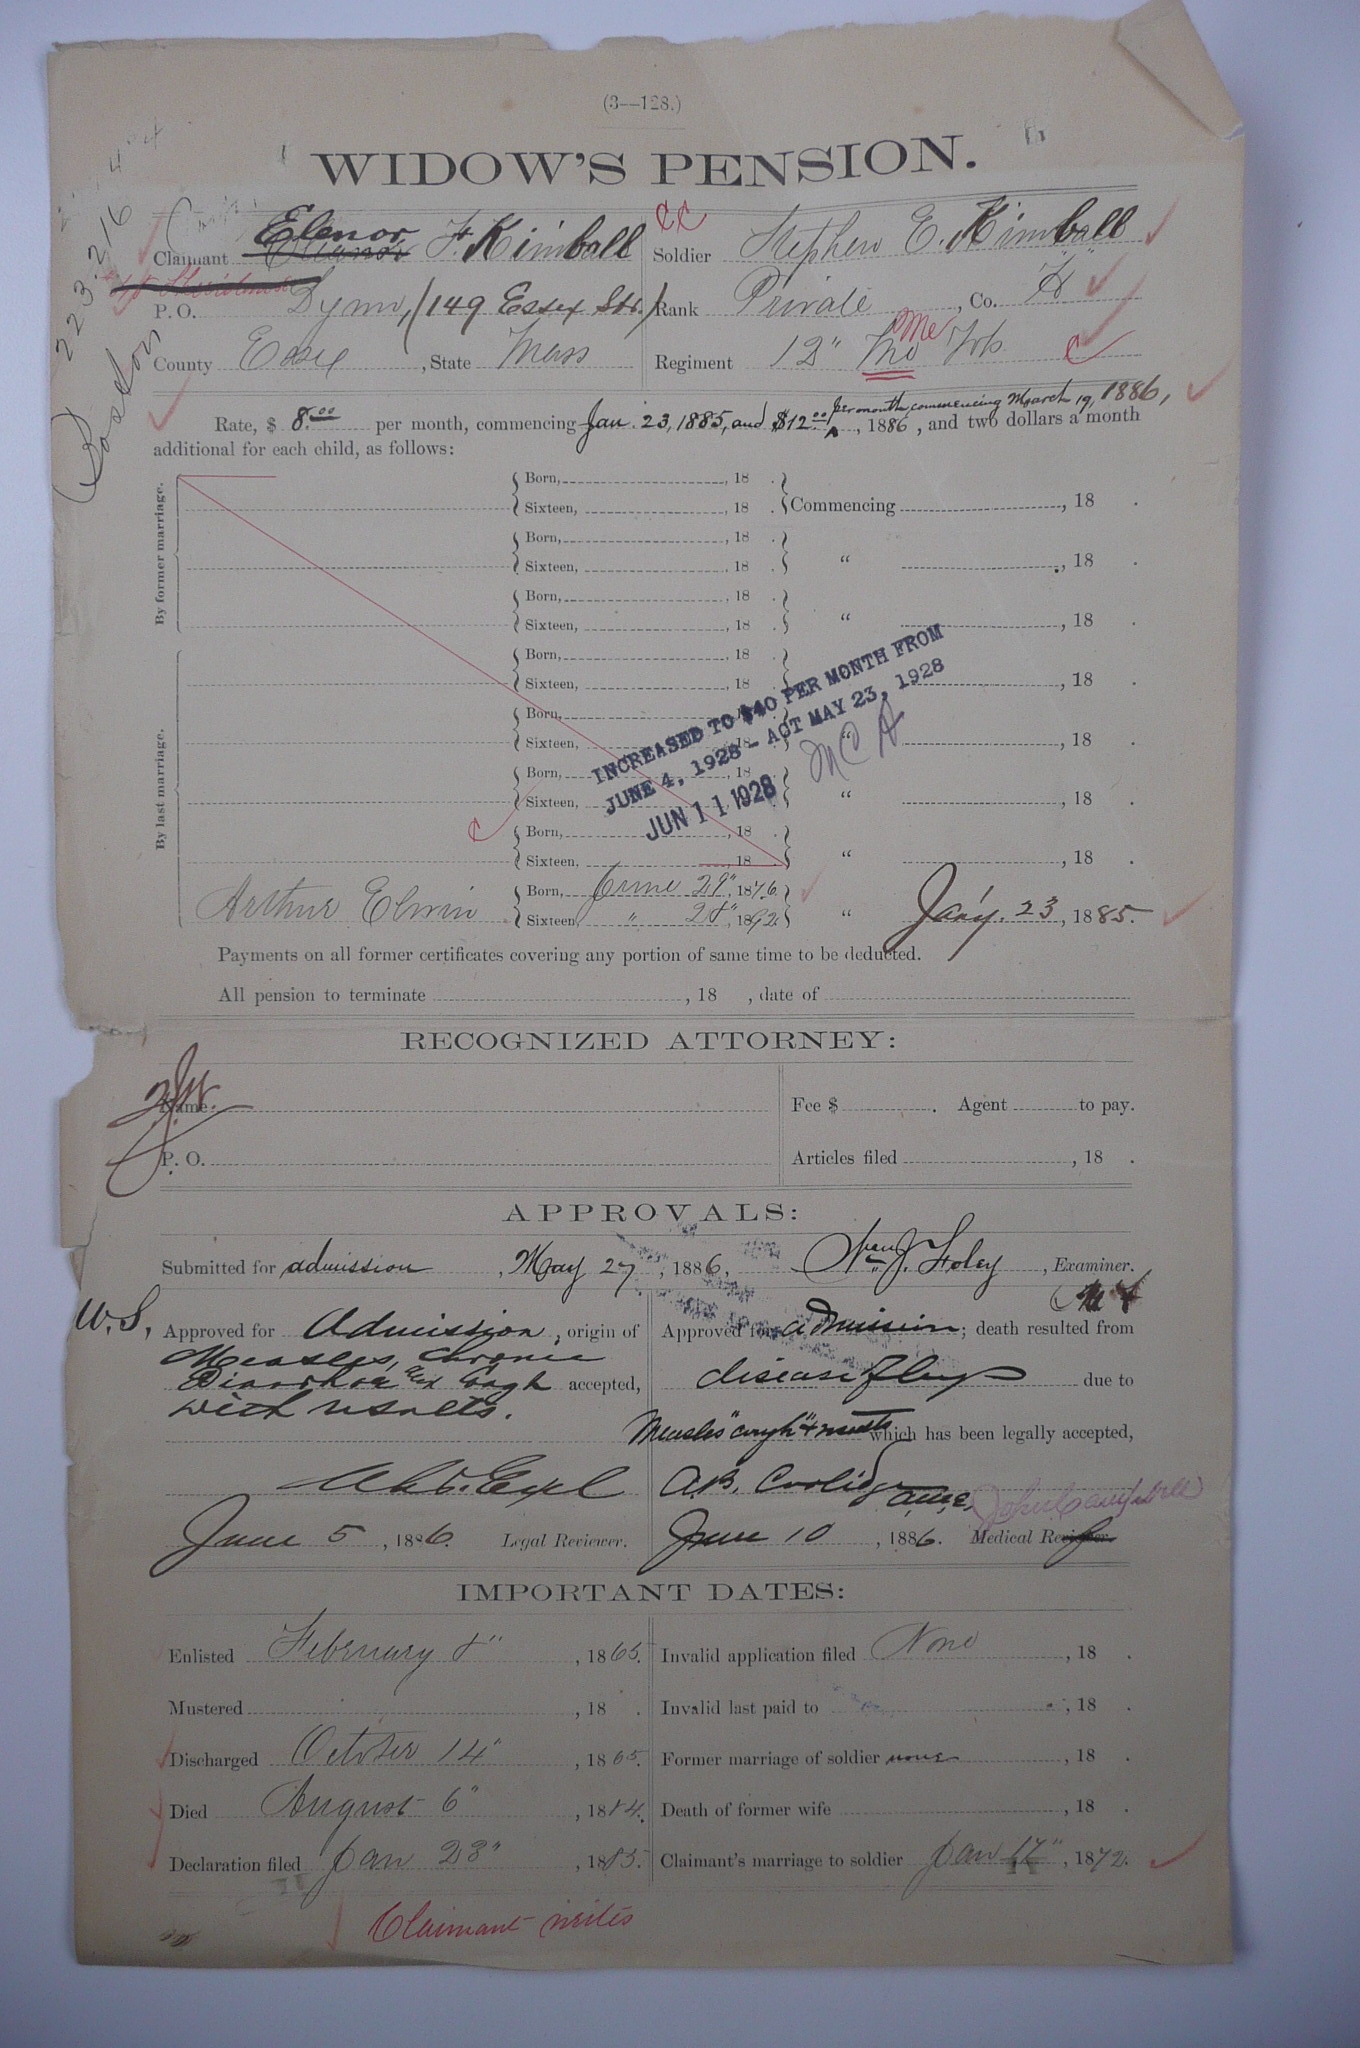 (3—128.)
WIDOW'S PENSION.
223.216
Boston
Claimant Elenor F. Kimball
Soldier Stephen E. Kimball
P. O. Lynn, (149 Essex Str.)
Rank Private, Co. "H"
County Essex, State Mass
Regiment 12" Me Vols
Rate, $ 8.00 per month, commencing Jan. 23, 1885, and $12.00 per month, commencing March 19, 1886, , 1886, and two dollars a month
additional for each child, as follows:
By former marriage.
Born, , 18 .
Sixteen, , 18 . Commencing , 18 .
Born, , 18 .
Sixteen, , 18 . " , 18 .
Born, , 18 .
Sixteen, , 18 . " , 18 .
By last marriage.
Born, , 18 .
Sixteen, , 18 . , 18 .
Born, , 18 .
Sixteen, , 18 . " , 18 .
Born, , 18 .
Sixteen, , 18 . " , 18 .
Born, , 18 .
Sixteen, , 18 . " , 18 .
INCREASED TO $40 PER MONTH FROM
JUNE 4, 1928 - ACT MAY 23, 1928
JUN 11 1928
Arthur Elwin Born, June 29", 1876.
Sixteen, " 28", 1892. " Jan'y. 23, 1885.
Payments on all former certificates covering any portion of same time to be deducted.
All pension to terminate , 18 , date of
RECOGNIZED ATTORNEY:
Name. Fee $ . Agent to pay.
P. O. Articles filed , 18 .
APPROVALS:
Submitted for admission, May 27, 1886, Wm J. Foley, Examiner.
W.S. Approved for Admission, origin of
Measles, Chronic
Diarrhoea and Cough accepted,
with results.
Approved for admission; death resulted from
disease of lungs due to
Measles "cough" & results which has been legally accepted,
A.B. Coolidge
John Campbell
June 5, 1886. Legal Reviewer.
June 10, 1886. Medical Reviewer.
IMPORTANT DATES:
Enlisted February 8", 1865. Invalid application filed None, 18 .
Mustered , 18 . Invalid last paid to , 18 .
Discharged October 14", 1865. Former marriage of soldier none, 18 .
Died August 6", 1884. Death of former wife , 18 .
Declaration filed Jan 23", 1885. Claimant's marriage to soldier Jan 17", 1872.
Claimant writes